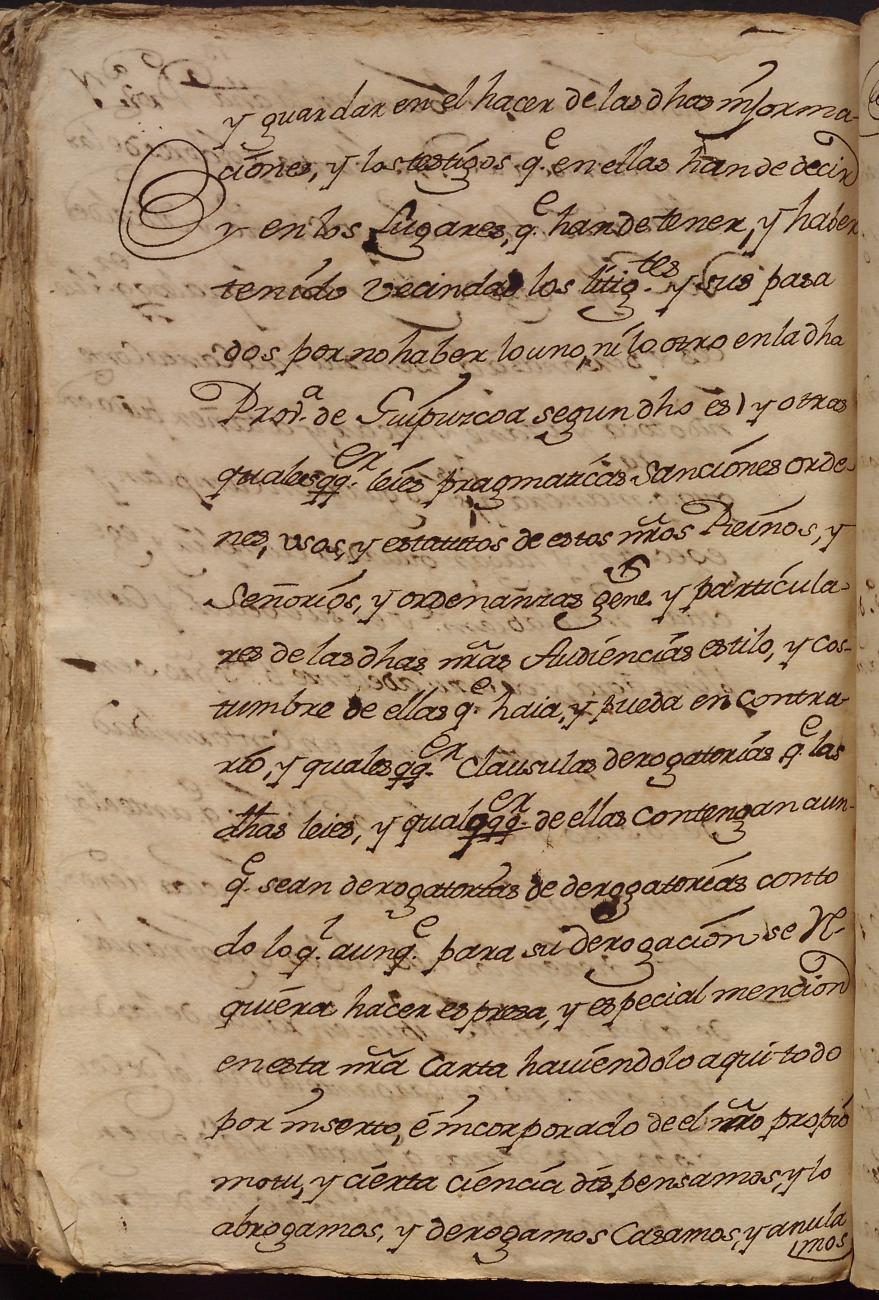 y guardar en el hacer de las dhas informa-
ciones, y los testigos q.e en ellas han de decir
y en los Lugares, q.e han de tener, y haber
tenido Vecindad los litig.tes y sus pasa
dos por no haber lo uno, ni lo otro en la dha
Prov.a de Guipuzcoa segun dho es) y otras
qualesqq.er leies pragmaticas Sanciones orde-
nes, usos, y estatutos de estos nr̃os Reinos, y
Señorios, y ordenanzas gene.s y particula-
res de las dhas nr̃as Audiencias estilo, y cos-
tumbre de ellas q.e haia, y pueda en contra-
rio, y qualesqq.er Clausulas derogatorias q.e las
dhas leies, y qualqq.er de ellas contengan aun-
q.e sean derogatorias de derogatorias con to
do lo q.l aunq.e para su derogacion se Re-
quiera hacer espresa, y especial mencion
en esta nr̃a Carta haviendolo aqui todo
por inserto, é incorporado de el nr̃o propio
motu, y cierta ciencia dispensamos, y lo
abrogamos, y derogamos Casamos, y anula
mos